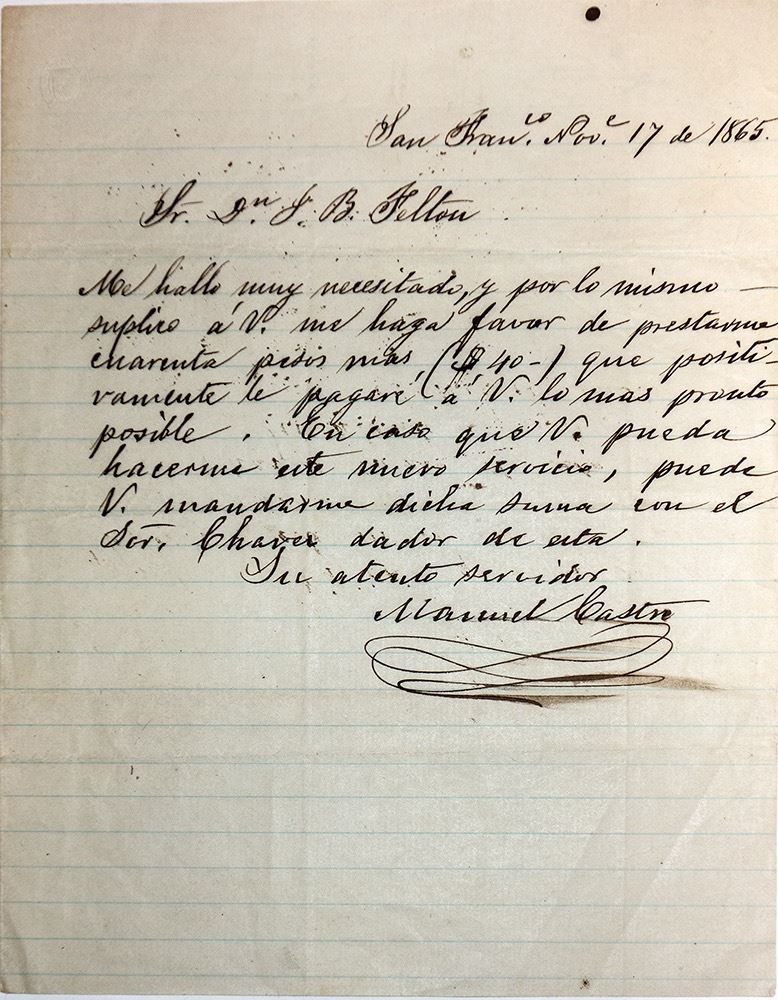 San Fran.co Nov.e 17 de 1865.
Sr. Dn. J. B. Felton.
Me hallo muy necesitado, y por lo mismo —
suplico á V. me haga favor de prestarme
cuarenta pesos mas, ($ 40-) que positi-
vamente le pagaré á V. lo mas pronto
posible. En caso que V. pueda
hacerme este nuevo servicio, puede
V. mandarme dicha suma con el
Sor. Chaves dador de esta.
Su atento servidor
Manuel Castro